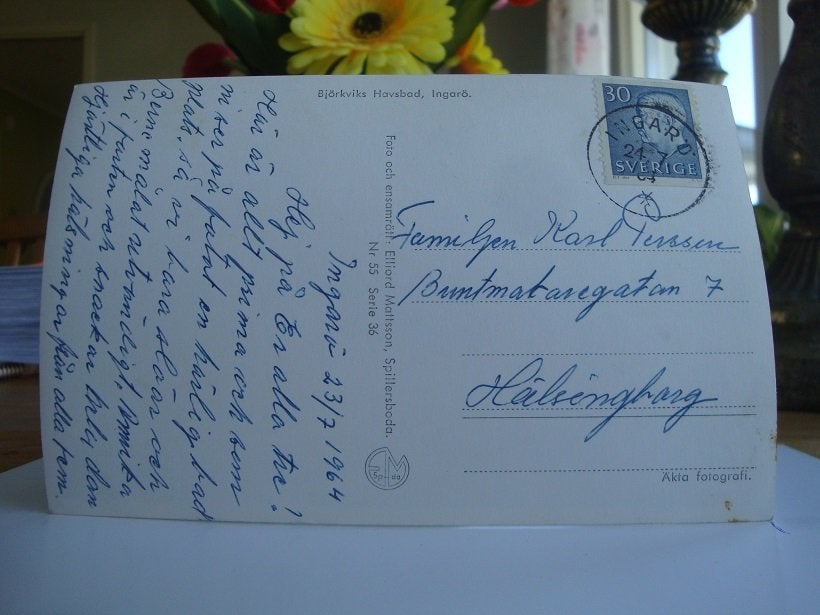 Björkviks Havsbad, Ingarö.
Ingarö 23/7 1964
Hej på Er alla tre!
Här är allt prima och som
ni ser på fotot en härlig bad
plats, så vi bara slöar och
målat utvändigt,
är i farten och snackar hela dan
Hjärtliga hälsningar från alla fem.
Foto och ensamrätt: Elliord Mattsson, Spillersboda.
Nr 55 Serie 36
30
SVERIGE
INGARÖ
24 -7
64
Familjen Karl Persson
Buntmakaregatan 7
Hälsingborg
Äkta fotografi.